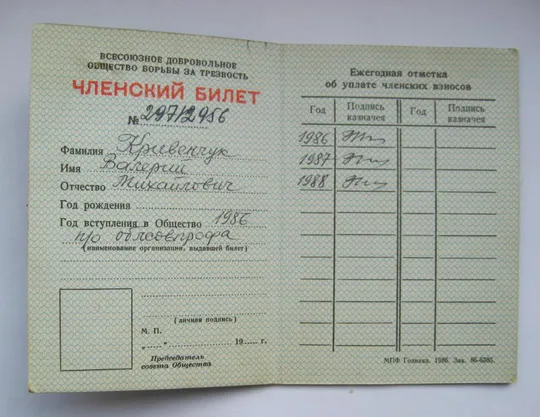 ВСЕСОЮЗНОЕ ДОБРОВОЛЬНОЕ
ОБЩЕСТВО БОРЬБЫ ЗА ТРЕЗВОСТЬ
ЧЛЕНСКИЙ БИЛЕТ
№ 297/2986
Фамилия Кривенчук
Имя Валерий
Отчество Михайлович
Год рождения
Год вступления в Общество 1986
п/о облсовпрофа
(наименование организации, выдавшей билет)
(личная подпись)
М. П.
„ “ 19 г.
Председатель
совета Общества
Ежегодная отметка
об уплате членских взносов
Год Подпись казначея Год Подпись казначея
1986
1987
1988
МПФ Гознака. 1986. Зак. 86-6385.